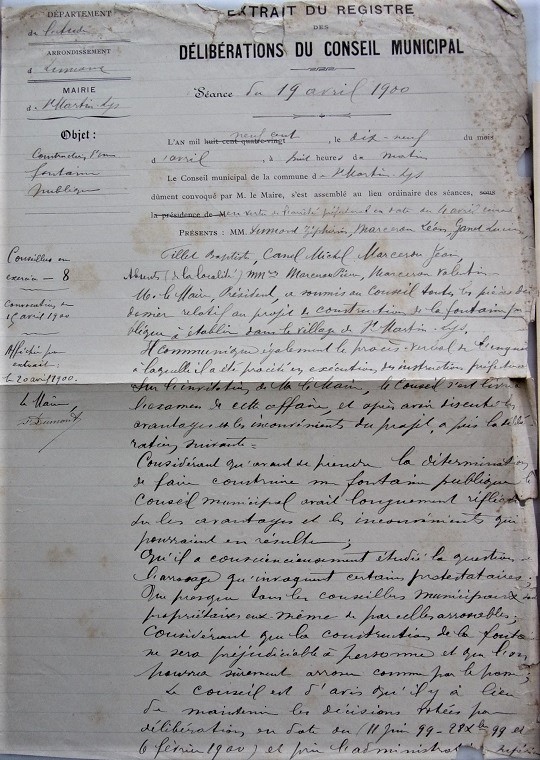 DÉPARTEMENT
de l'Aude
ARRONDISSEMENT
d Limoux
MAIRIE
d St Martin-Lys
Objet :
Construction d'une
fontaine
publique
Conseillers en
exercice — 8
Convocation du
15 avril 1900
Affiché par
extrait
le 20 avril 1900.
Le Maire,
EXTRAIT DU REGISTRE
DES
DÉLIBÉRATIONS DU CONSEIL MUNICIPAL
Séance du 19 avril 1900
L'AN mil huit cent quatre-vingt neuf cent, le dix-neuf du mois
d'avril, à huit heures du matin
Le Conseil municipal de la commune d St Martin-Lys
dûment convoqué par M. le Maire, s'est assemblé au lieu ordinaire des séances, sous
la présidence de M en vertu de préfectoral en date du avril
PRÉSENTS : MM. Zéphirin, Marceron Léon,
Tillet Baptiste, Canel Michel Marceron Jean,
Absents (de la localité) MM. Marceron, Marceron Valentin
Mr le Maire, Président, a soumis au Conseil toutes les pièces du
dossier relatif au projet de construction de la fontaine pu
blique à établir dans le village de St Martin-Lys,
Il communique également le procès-verbal de
à laquelle il a été procédé en exécution des instructions
Sur l'invitation de Mr le Maire, le Conseil s'est livré
l'examen de cette affaire, et après avoir discuté les
avantages et les inconvénients du projet, a pris la délibé
ration suivante =
Considérant qu'avant de prendre la détermination
de faire construire une fontaine publique
Conseil municipal avait longuement réfléchi
sur les avantages et les inconvénients qui
pourraient en résulter ;
Qu'il a consciencieusement étudié la question
l'arrosage qu'invoquent certains protestataires ;
Que presque tous les conseillers municipaux
propriétaires eux-même de parcelles arrosables ;
Considérant que la construction de la fontaine
ne sera préjudiciable à personne et que l'on
pourra sûrement arroser comme par le passé ;
Le conseil est d'avis qu'il y a lieu
de maintenir les décisions votées par
délibérations en date du (11 Juin 99 - 28 Xbre 99 et
6 février 1900) et prie l'administration